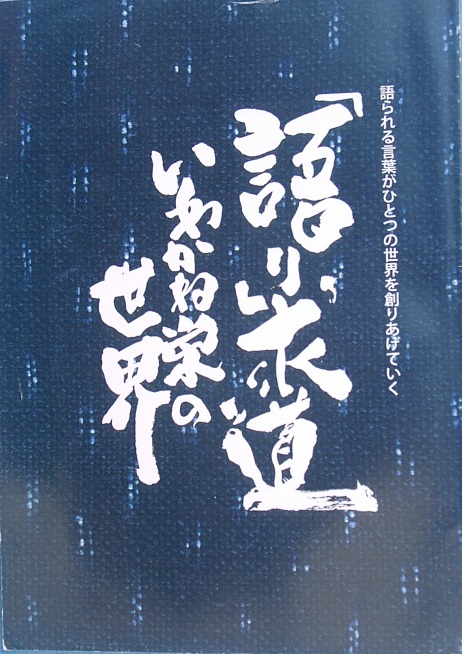 語られる言葉がひとつの世界を創りあげていく
「語り衣道」
いわかね栄の
世界